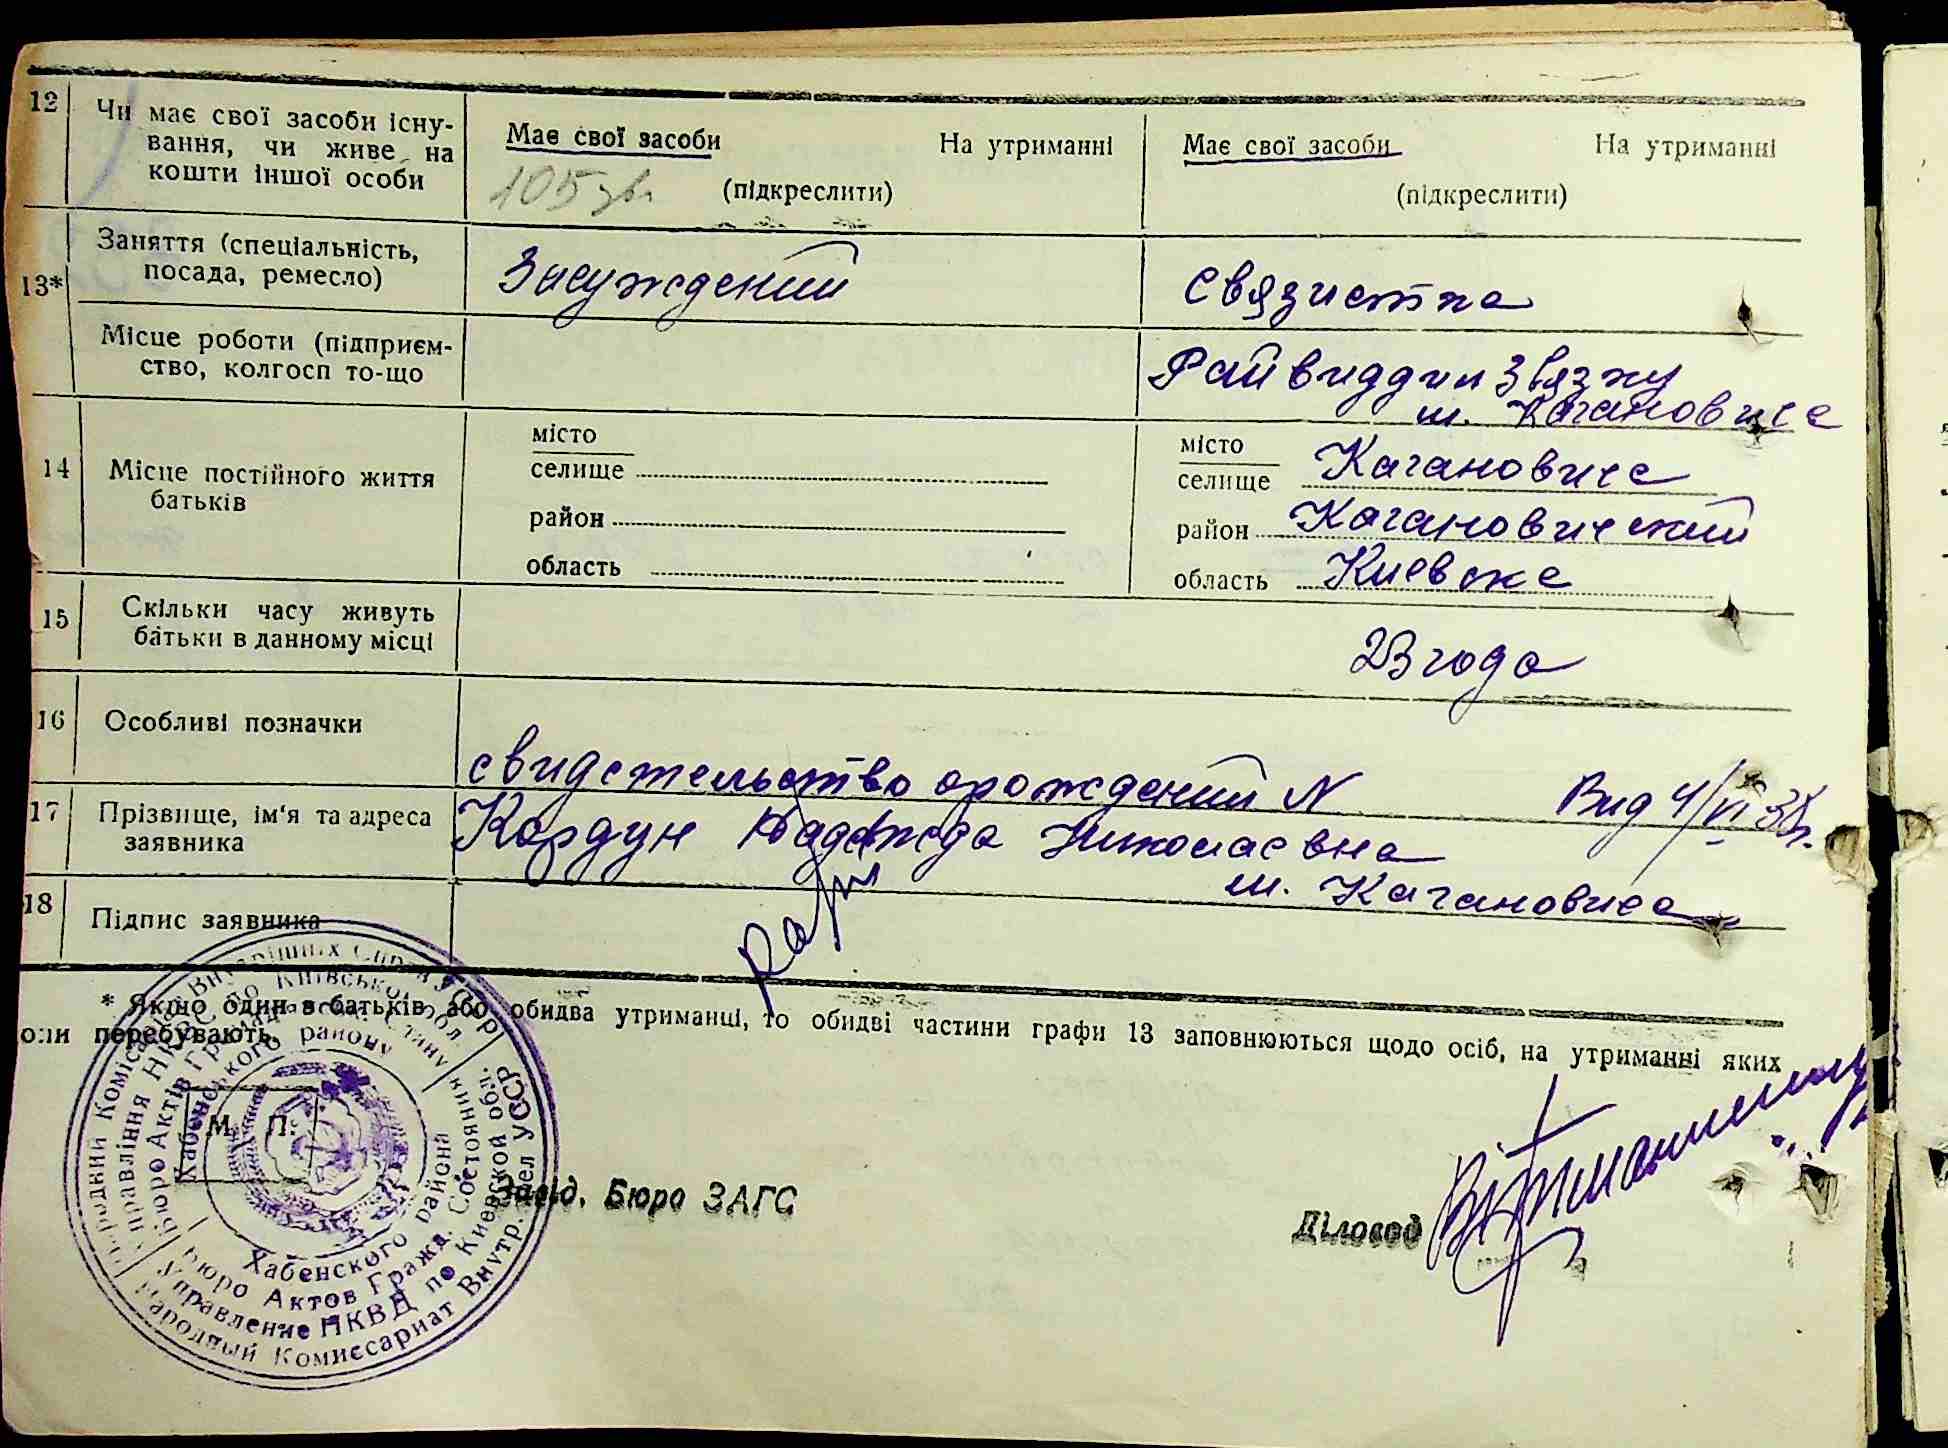 12 Чи має свої засоби існу-
вання, чи живе на
кошти іншої особи
Має свої засоби На утриманні
105 зв.
(підкреслити)
Має свої засоби На утриманні
(підкреслити)
13* Заняття (спеціальність,
посада, ремесло)
Засуждений
связистка
Місце роботи (підприєм-
ство, колгосп то-що
Райвиддил Звязку
м. Кагановиче
14 Місце постійного життя
батьків
місто
селище
район
область
місто
селище Кагановиче
район Кагановический
область Киевске
15 Скільки часу живуть
батьки в данному місці
23 года
16 Особливі позначки
свидетельство орождений N Вид 4/VI 38г.
17 Прізвище, ім'я та адреса
заявника
Кордун Надежда Николаевна
м. Кагановиче
18 Підпис заявника
* Якщо один з батьків або обидва утриманці, то обидві частини графи 13 заповнюються щодо осіб, на утриманні яких
они перебувають.
М. П.
Завід. Бюро ЗАГС
Діловод
Народний Комісаріат Внутрішних Справ УСРР
Управління НКВС по Київській обл.
Бюро Актів Громадянськ. Стану
Хабенського району
Хабенского района
Бюро Актов Гражд. Состояния
Управление НКВД по Киевской обл.
Народный Комиссариат Внутр. Дел УССР